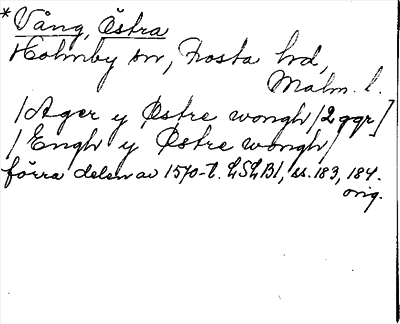 * Vång, Östra
Holmby sn, Frosta hd,
Malm. l.
/Ager y Østre wongh/2 ggr/
/Engh y Østre wongh/
förra delen av 1570-t. LSLB1, ss. 183, 184.
orig.